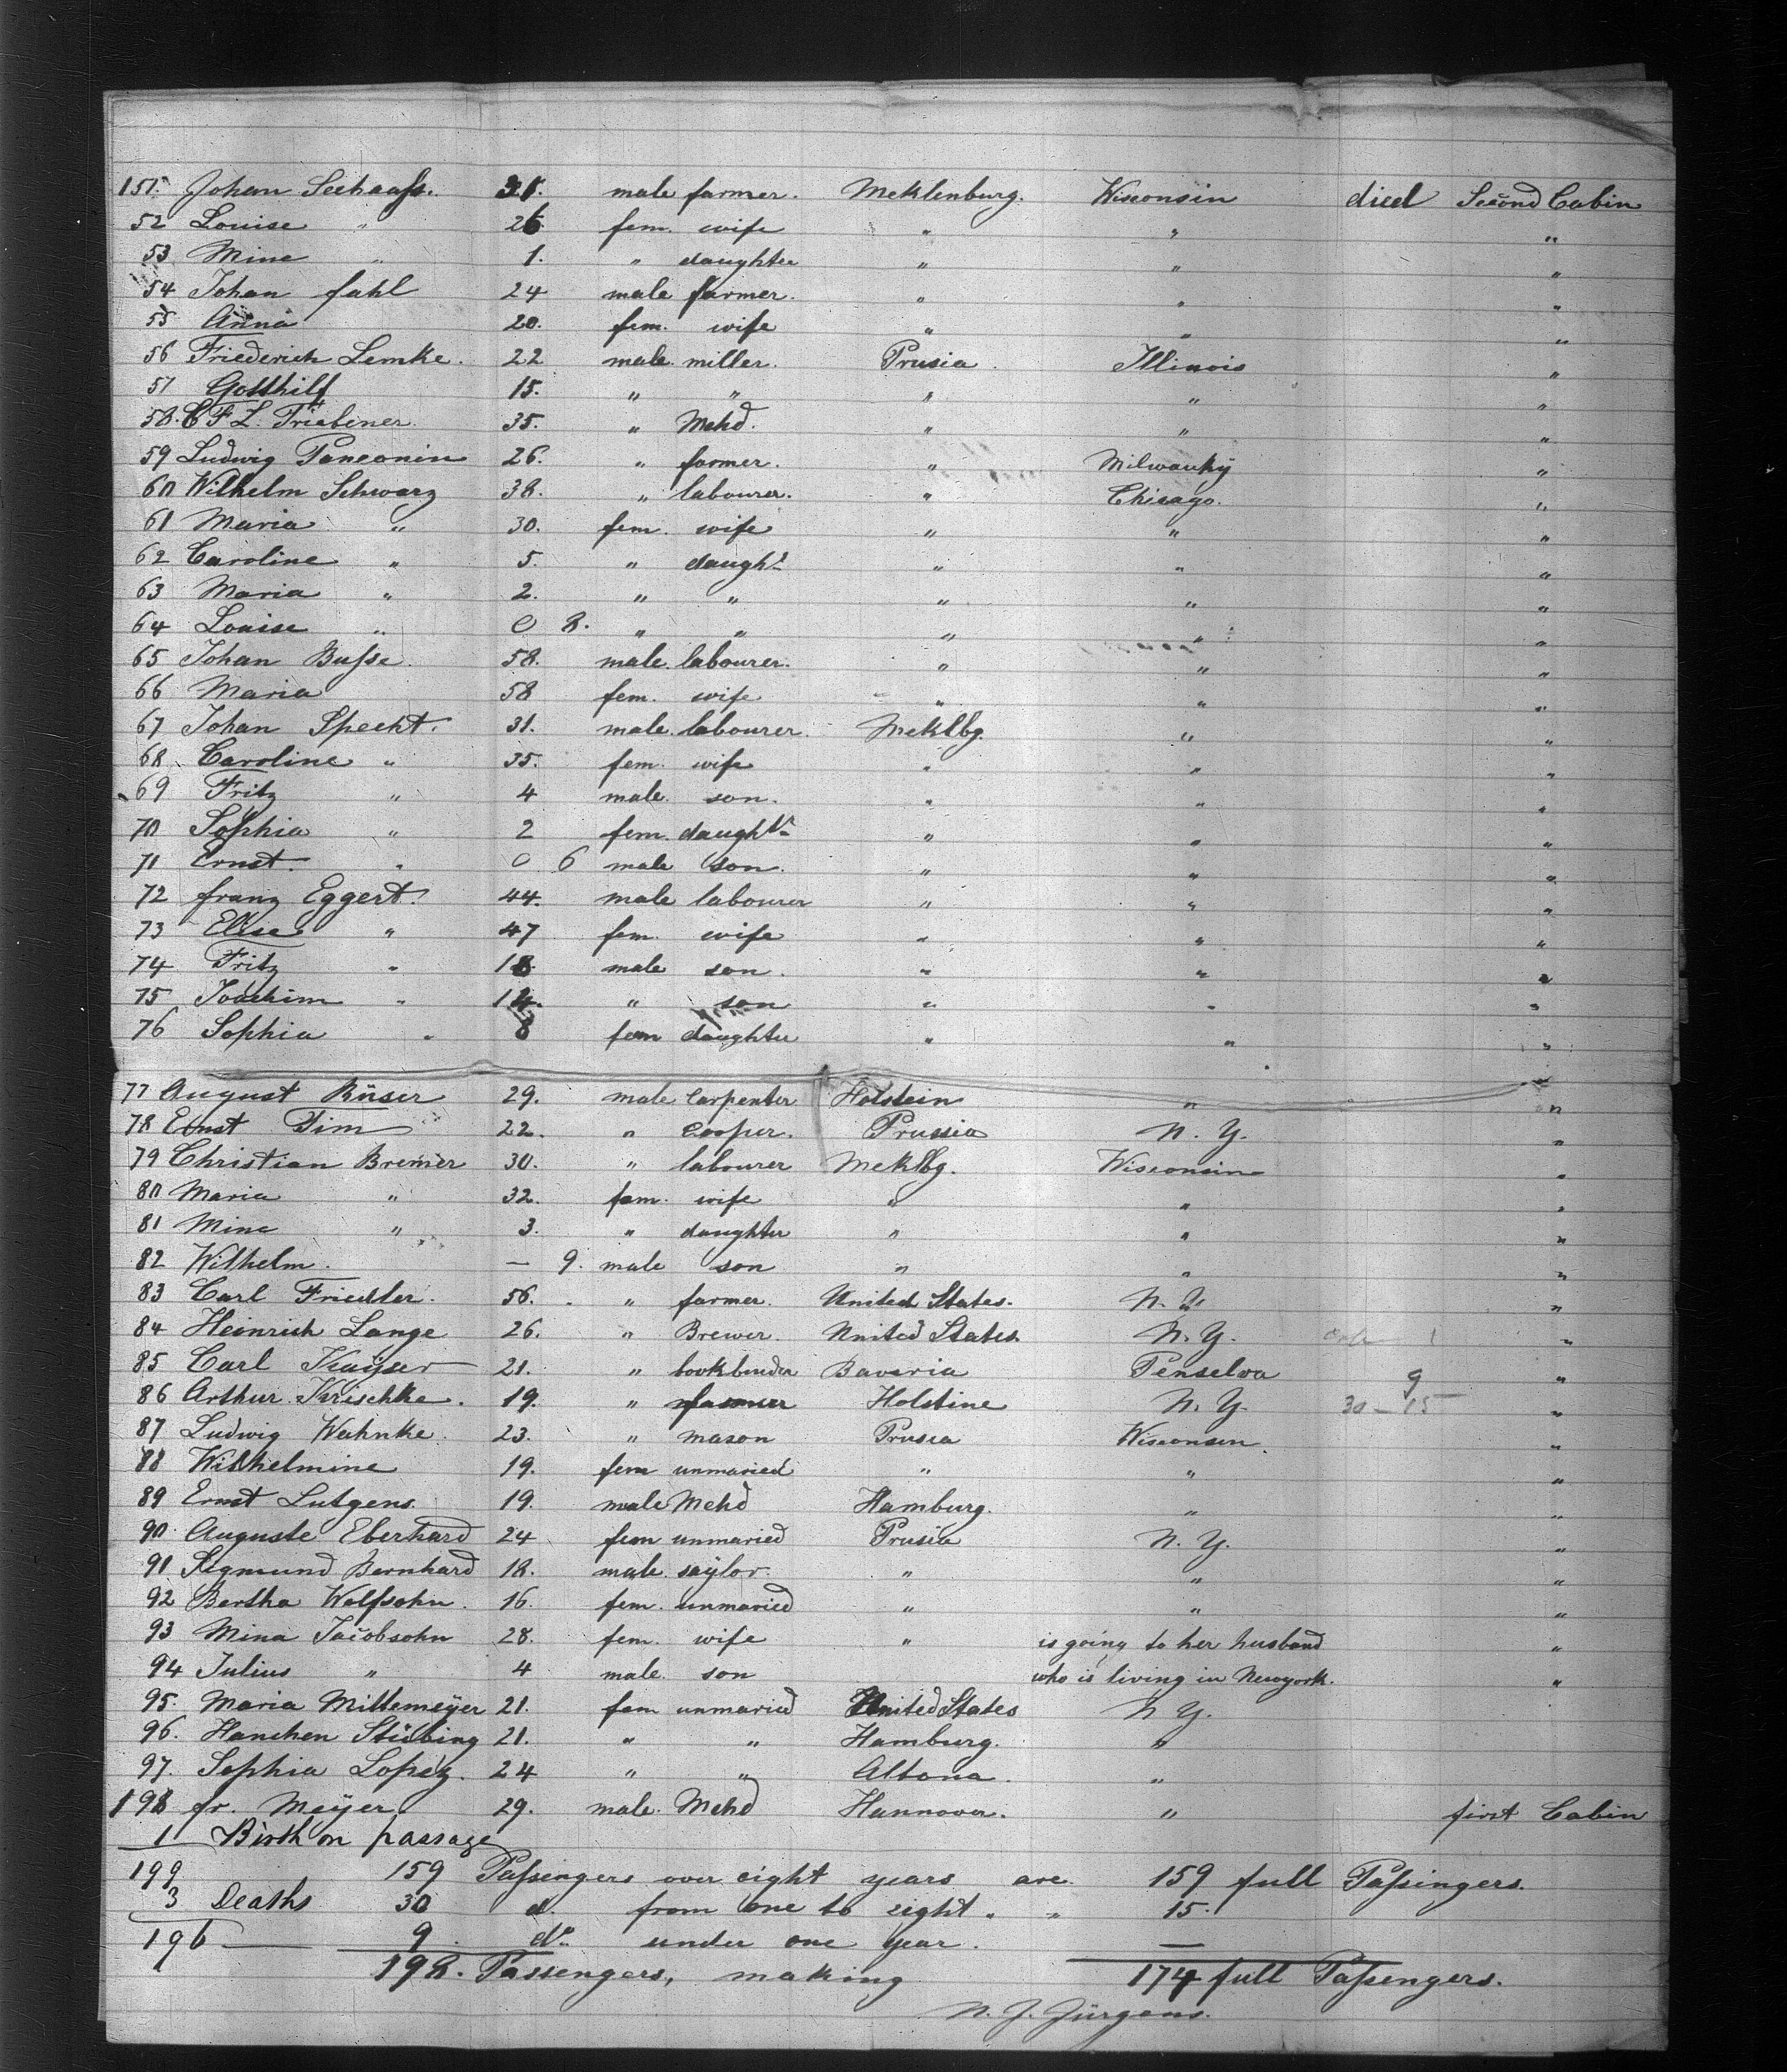 151. Johan Seehaafs. 31. male farmer. Meklenburg. Wisconsin died Second Cabin
52 Louise " 26 fem. wife " " "
53 Mine " 1. " daughter " " "
54 Johan fahl 24 male farmer. " " "
55 Anna 20. fem. wife " " "
56 Friederich Lemke. 22 male miller. Prusia Illinois "
57 Gotthilf 15. " " " " "
58. C F L. Triebener. 35. " Mchd. " " "
59 Ludwig Panconin 26. " farmer. " Milwauky "
60 Wilhelm Schwarz 38. " labourer. " Chicago. "
61 Maria " 30. fem. wife " " "
62 Caroline " 5. " daughr " " "
63 Maria " 2. " " " " "
64 Louise " 0 8. " " " " "
65 Johan Bufse 58. male labourer. " " "
66 Maria 58 fem. wife " " "
67 Johan Specht. 31. male labourer Meklbg. " "
68 Caroline " 35. fem. wife " " "
69 Fritz " 4 male son. " " "
70 Sophia " 2 fem. daughtr " " "
71 Ernst. " 0 6 male son. " " "
72 franz Eggert. 44. male labourer " " "
73 Elise " 47 fem. wife " " "
74 Fritz " 18. male son. " " "
75 Joachim " 14. " son " " "
76 Sophia " 8 fem daughter " " "
77 August Röser 29. male Carpenter Holstein " "
78 Ernst Tim 22. " Cooper. Prussia N. Y. "
79 Christian Bremer 30. " labourer Meklbg. Wisconsin "
80 Maria " 32. fem. wife " " "
81 Mine " 3. " daughter " " "
82 Wilhelm. — 9. male son " " "
83 Carl Friedler. 56. " farmer. United States. N. Y. "
84 Heinrich Lange 26. " Brewer United States. N. Y. 1 "
85 Carl Kayser 21. " bookbinder Bavaria Penselva 9 "
86 Arthur Krischke. 19. " farmer Holstine N. Y. 30 – 15 "
87 Ludwig Wahnke. 23. " mason Prusia Wisconsin. "
88 Wilhelmine 19. fem unmaried " " "
89 Ernst Lutgens 19. male Mchd Hamburg. " "
90. Auguste Eberhard 24 fem unmaried Prusia N. Y. "
91 Sigmund Bernhard 18. male saylor. " " "
92 Bertha Wolfsohn. 16. fem. unmaried " " "
93 Mina Jacobsohn 28. fem. wife " is going to her husband "
94 Julius " 4 male son who is living in Newyork. "
95. Maria Mittemeyer 21. fem unmaried United States N Y.
96. Hanchen Stübing 21. " " Hamburg. "
97. Sophia Lopez. 24 " " Altona. "
198 fr. Meyer. 29. male. Mchd Hannover. " first Cabin
1 Birth on passage
199 159 Pafsengers over eight years are 159 full Pafsingers.
3 Deaths 30 do. from one to eight " " 15.
196 9. do. under one year. —
198. Passengers, making 174 full Pafsengers.
N. J. Jürgens.